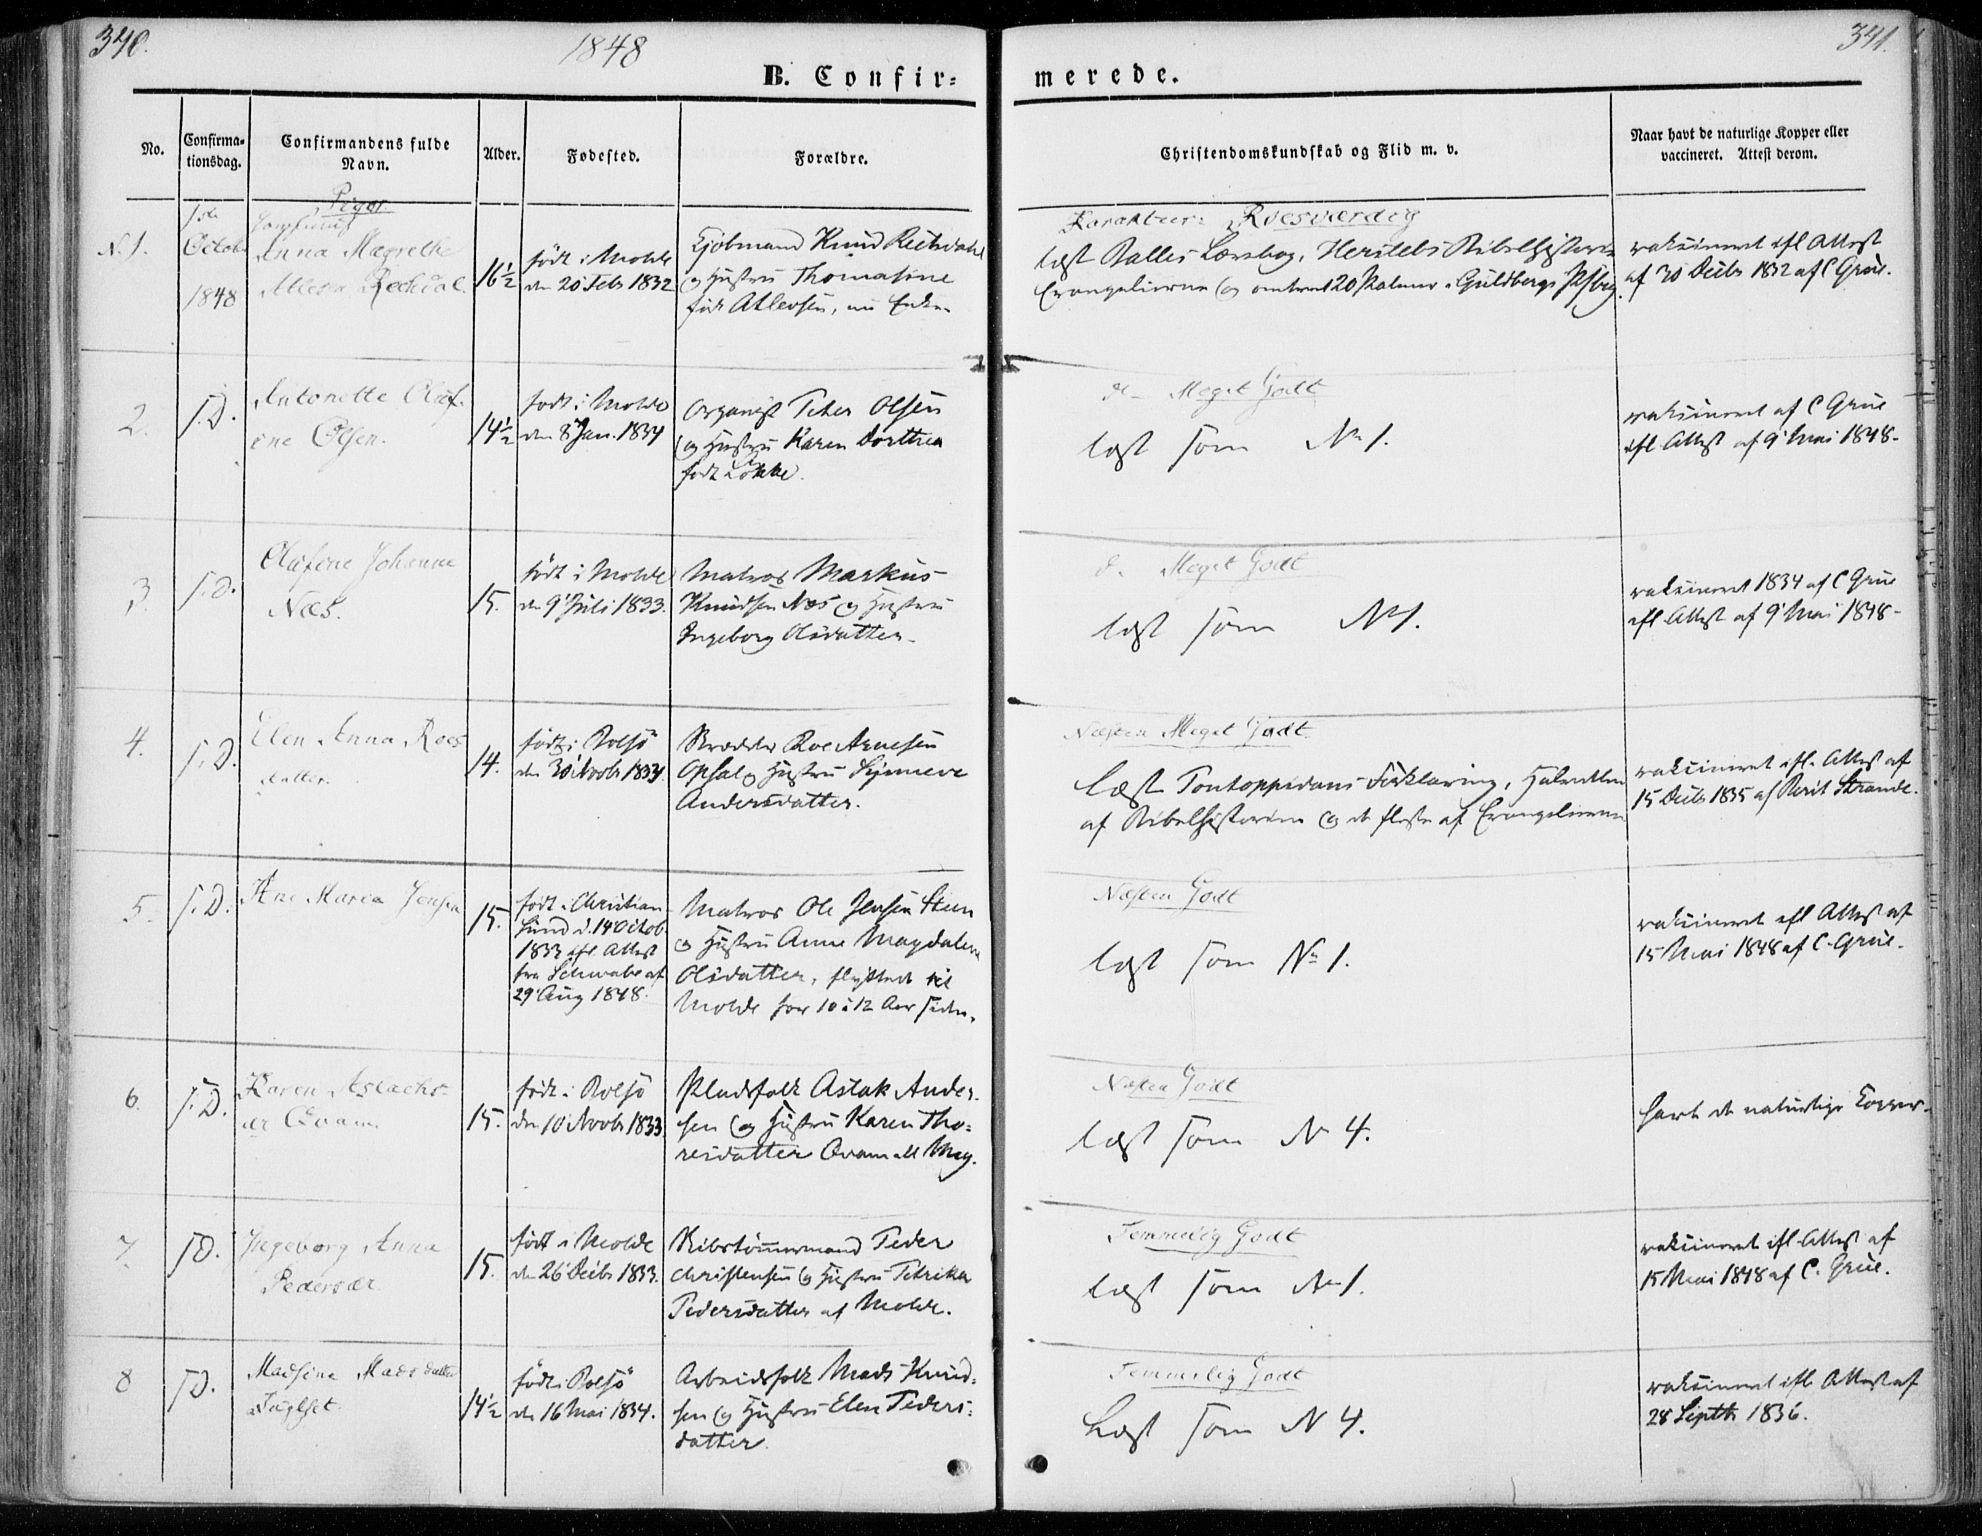 340.
1848
B. Confir=
merede.
341.
No.
Confirma-
tionsdag.
Confirmandens fulde
Navn.
Alder.
Fødested.
Forældre.
Christendomskundskab og Flid m. v.
Naar havt de naturlige Kopper eller
vaccineret. Attest derom.
Piger
N. 1.
1ste
October
1848
Jomfrue
Anna Magrethe
16½
født i Molde
den 20 Feb 1832
Kjøbmand Knud
og Hustru Thomasine
født Atlevsen, nu Enke.
Karakteer: Roesværdig
læst Balles Lærebog, Herslebs Bibelhistorie
Evangelierne og omtrent 20 Psalmer i Guldbergs Psbog.
vaksineret ifl Attest
af 30 Decbr 1832 af C Grüe.
2.
s. D.
Antonette Oluf-
ine Olsen.
14½
født i Molde
den 8 Jan. 1834
Organist Peter Olsen
og Hustru Karen Dorthea
født Løkke.
do Meget Godt
læst som No 1.
vaksineret af C Grüe
ifl Attest af 9 Mai 1848-
3.
s. D.
Olufine Johanna
Næs.
15.
født i Molde
den 9 Juli 1833.
Matros Markus
Knudsen Næs og Hustru
Ingeborg Olsdatter.
d. Meget Godt
læst som No 1.
vaksineret 1834 af C Grüe
ifl Attest af 9 Mai 1848-
4.
s. D.
Elen Anna Roes
datter.
14.
født i Bolsø
den 30 Novbr 1834
Skrædder Roe Arnesen
Opsal og Hustru Synneve
Andersdatter.
Næsten Meget Godt.
Læst Pontoppidans Forklaring, Halvdelen
af Bibelhistorien og de fleste af Evangelierne
vaksineret ifl. Attest af
15 Decbr 1835 af Berit Strande.
5.
s. D.
Ane Maria Jensen
15.
født i Christian
sund d. 14 Octob
1833 ifl Attest
fra Schwabe af
29 Aug 1848.
Matros Ole Jensen Steen
og Hustru Anne Magdalena
Olsdatter, flyttede til
Molde for 10 à 12 Aar siden.
Næsten Godt
læst som No 1.
vaksineret ifl Attest af
15 Mai 1848 af C. Grüe.
6.
s. D.
Karen Aslachs-
dr Qvam
15.
født i Bolsø
den 10 Novbr 1833
Pladsfolk Aslak Ander-
sen og Hustru Karen Tho=
resdatter Qvam
Næsten Godt
læst som N 4.
havt de naturlige Kopper.
7.
s D.
Ingeborg Anna
Pedersdr
15.
født i Molde
den 26 Decbr 1833.
Skibstømmermand Peder
Christensen og Hustru Petrika
Pedersdatter af Molde.
Temmelig Godt
læst som N 1.
vaksineret ifl. Attest af
15 Mai 1848 af C. Grüe.
8
s D.
Madsine Mads datter
Fuglset.
14½
født i Bolsø
den 16 Mai 1834.
Arbeidsfolk Mads Knud-
sen og Hustru Elen Peders-
datter.
Temmelig Godt
Læst som N 4.
vaksineret ifl. Attest af
28 Septbr 1836.